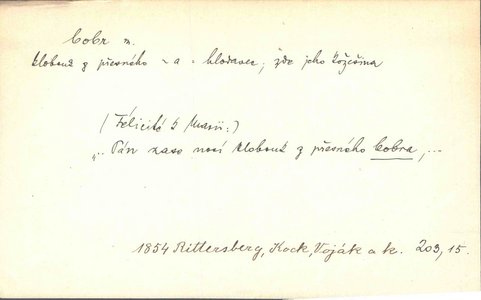 bobr m.
klobouk z přesného ~ a - hlodavec; zde jeho kožešina
(Félicité k Marii:)
„.. Pán zase nosí klobouk z přesného bobra, ...
1854 Rittersberg, Kock, Voják a k. 203, 15.